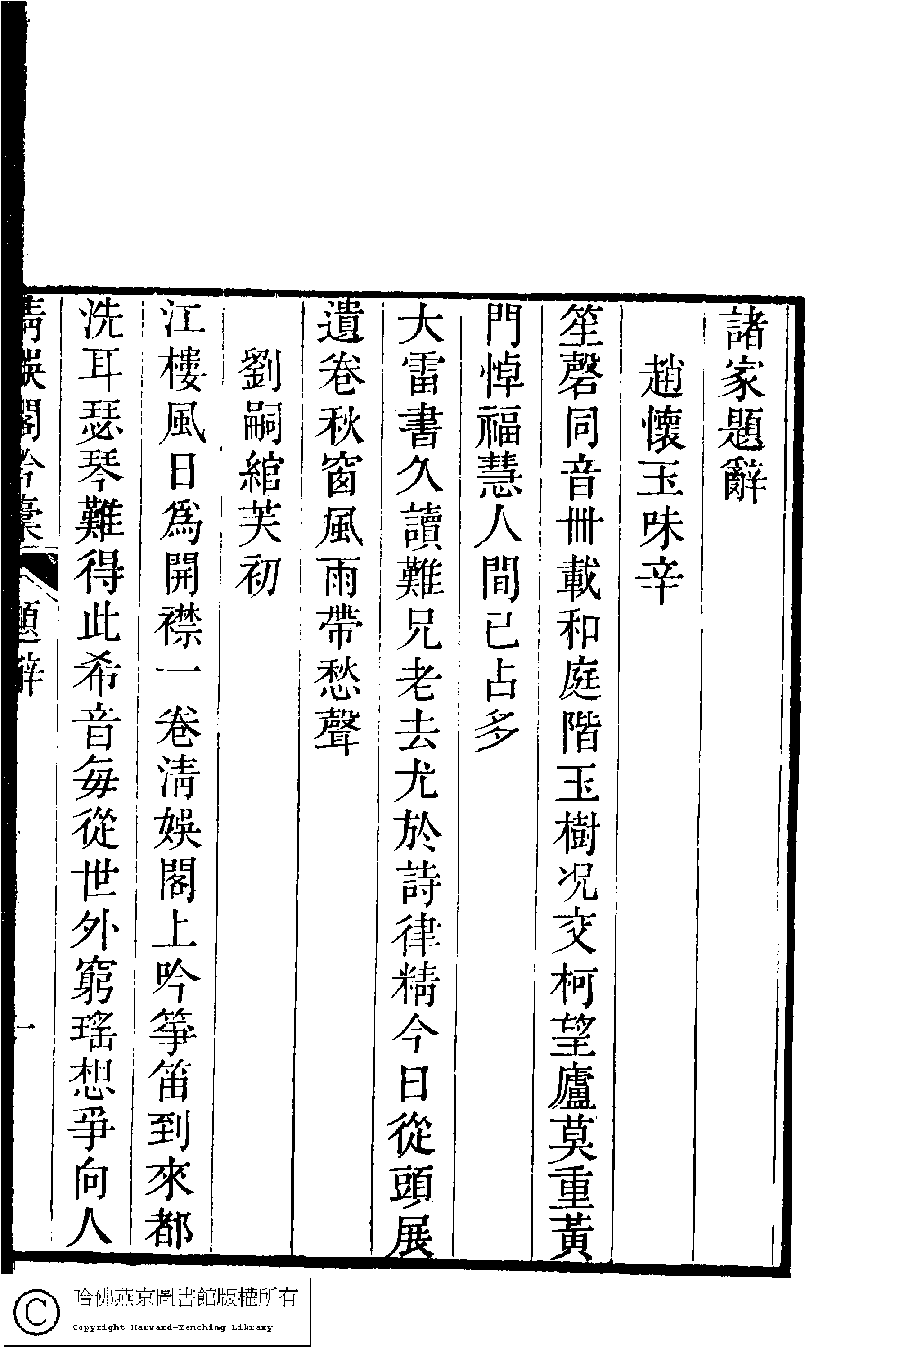 諸家題辭
趙懷玉味辛
笙磬同音卌載和庭階玉樹况交柯望廬莫重黃
門悼福慧人間已占多
大雷書久讀難兄老去尤於詩律精今日從頭展
遺卷秋窗風雨帶愁聲
劉嗣綰芙初
江樓風日爲開襟一卷清娛閣上吟箏笛到來都
洗耳瑟琴難得此希音每從世外窮瑤想爭向人
清娛閣吟稾 題辭 一
哈佛燕京圖書館版權所有
Copyright Harvard-Yenching Library